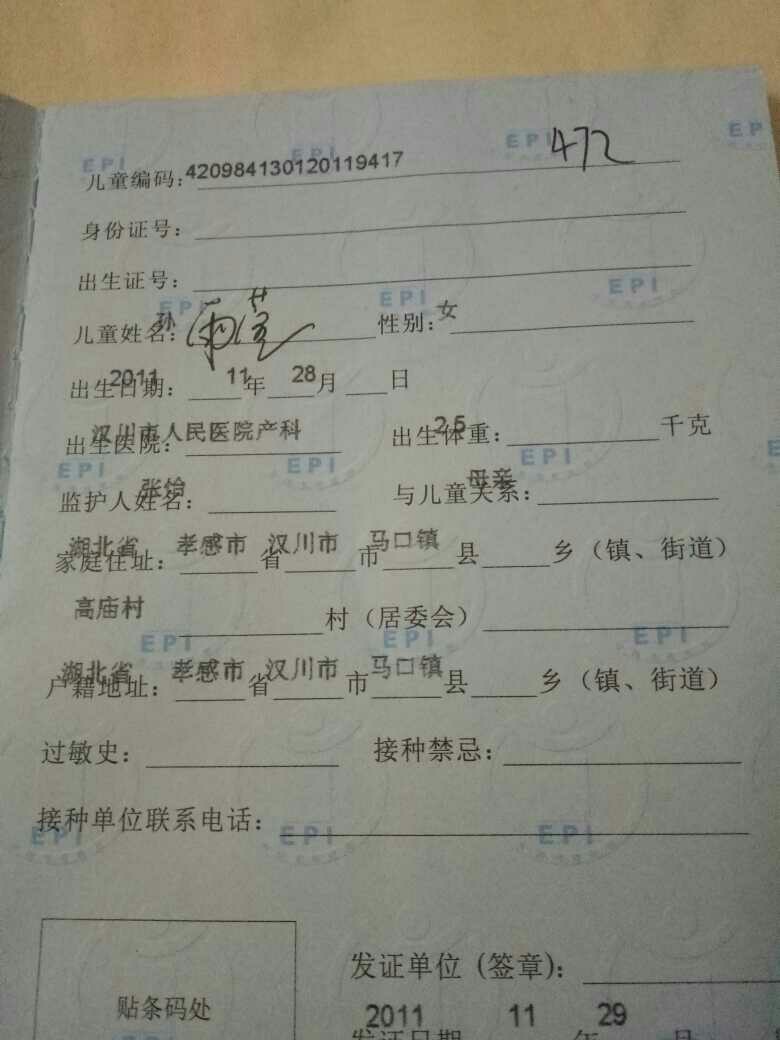 儿童编码：420984130120119417 472
身份证号：
出生证号：
儿童姓名：孙雨萱 性别：女
出生日期：2011年11月28日
出生医院：汉川市人民医院产科 出生体重：2.5千克
监护人姓名：张 与儿童关系：母亲
家庭住址：湖北省 孝感市 汉川市 马口镇 省 市 县 乡（镇、街道）
高庙村 村（居委会）
户籍地址：湖北省 孝感市 汉川市 马口镇 省 市 县 乡（镇、街道）
过敏史： 接种禁忌：
接种单位联系电话：
发证单位（签章）：
贴条码处
发证日期 2011年 11月 29
EPI